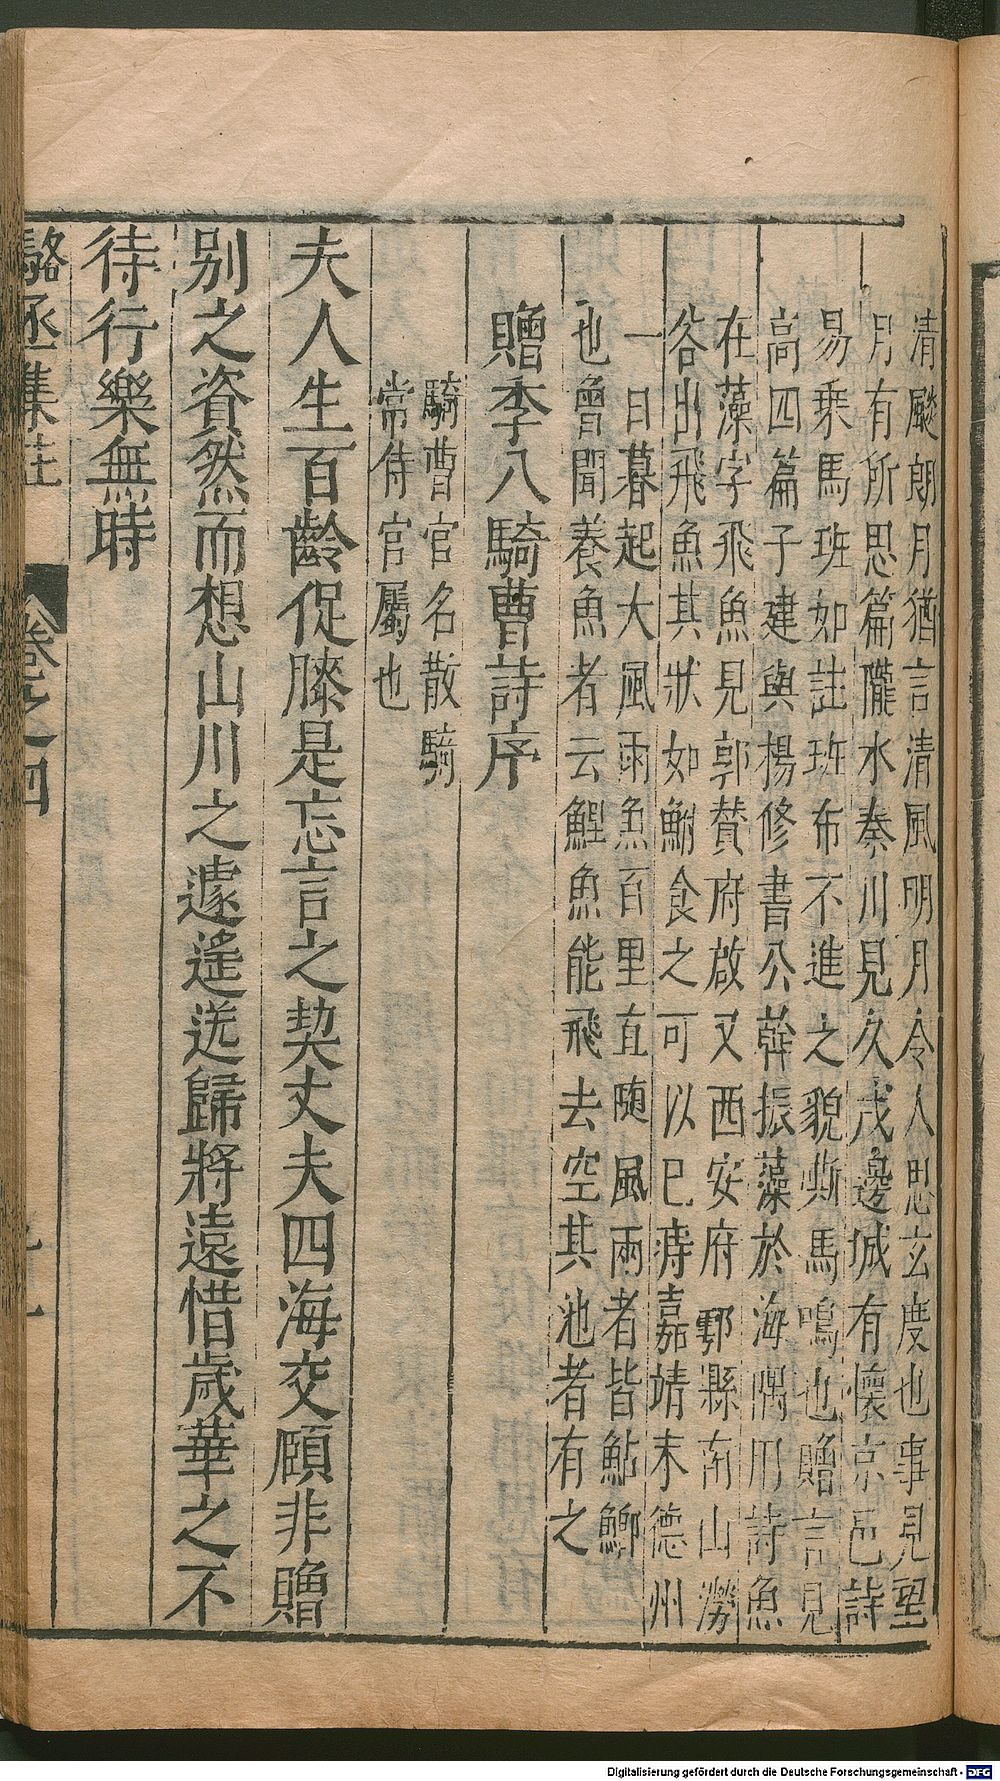 清飈朗月猶言清風明月令人思玄度也事見望
月有所思篇隴水奏川見久戍邊城有懷京邑詩
易乗馬班如註班布不進之貌嘶馬鳴也贈言見
高四篇子建與楊修書公幹振藻於海隅用詩魚
在藻字飛魚見郭賛府啟又西安府鄠縣南山澇
谷出飛魚其狀如鮒食之可以已痔嘉靖末德州
一日暮起大風雨魚百里直随風雨者皆鮎鯽
也曾聞養魚者云鯉魚能飛去空其池者有之
贈李八騎曹詩序
騎曹官名散騎
常侍官屬也
夫人生百齡促膝是忘言之契丈夫四海交頋非贈
别之資然而想山川之遽遥送歸將遠惜歲華之不
待行樂無時
駱丞集註 卷之四
Digitalisierung gefördert durch die Deutsche Forschungsgemeinschaft - DFG